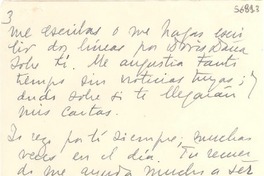 56883
3
me escribas o me hagas escri
bir dos líneas por Doris Dana
sobre ti. Me angustia tanto
tiempo sin noticias tuyas; y
dudo sobre si te llegarán
mis cartas.
Yo rezo por ti siempre, muchas
veces en el día. Tu recuer
do me ayuda mucho a ser